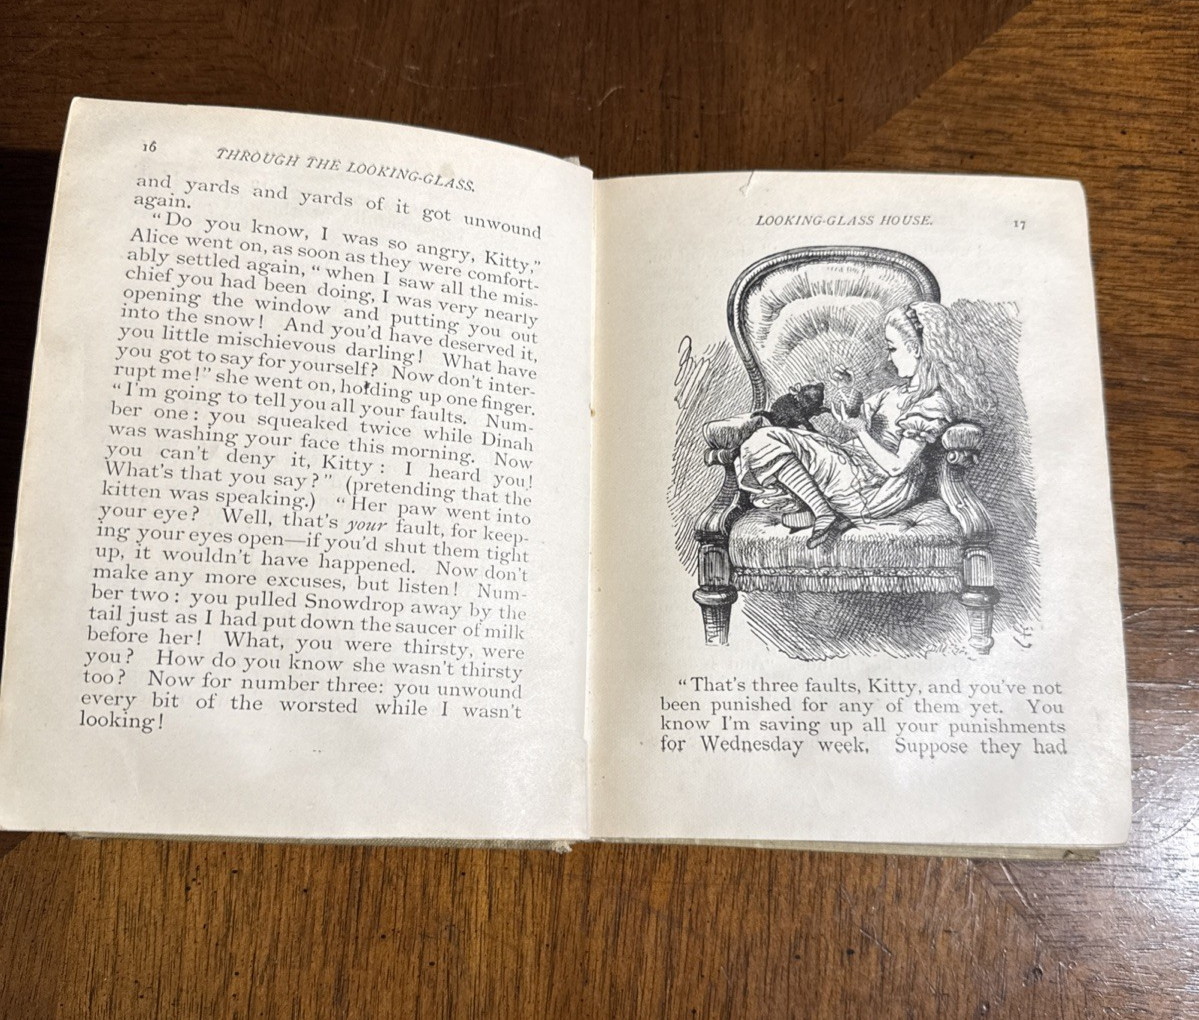 16
THROUGH THE LOOKING-GLASS.
and yards and yards of it got unwound
again.
“Do you know, I was so angry, Kitty,”
Alice went on, as soon as they were comfort-
ably settled again, “when I saw all the mis-
chief you had been doing, I was very nearly
opening the window and putting you out
into the snow! And you'd have deserved it,
you little mischievous darling! What have
you got to say for yourself? Now don't inter-
rupt me!” she went on, holding up one finger.
“I'm going to tell you all your faults. Num-
ber one: you squeaked twice while Dinah
was washing your face this morning. Now
you can't deny it, Kitty: I heard you!
What's that you say?” (pretending that the
kitten was speaking.) “Her paw went into
your eye? Well, that's your fault, for keep-
ing your eyes open—if you'd shut them tight
up, it wouldn't have happened. Now don't
make any more excuses, but listen! Num-
ber two: you pulled Snowdrop away by the
tail just as I had put down the saucer of milk
before her! What, you were thirsty, were
you? How do you know she wasn't thirsty
too? Now for number three: you unwound
every bit of the worsted while I wasn't
looking!
LOOKING-GLASS HOUSE.
17
“That's three faults, Kitty, and you've not
been punished for any of them yet. You
know I'm saving up all your punishments
for Wednesday week. Suppose they had